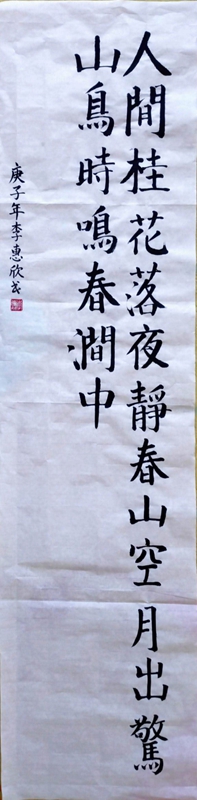 人間桂花落夜靜春山空月出驚
山鳥時鳴春澗中
庚子年李惠欣书